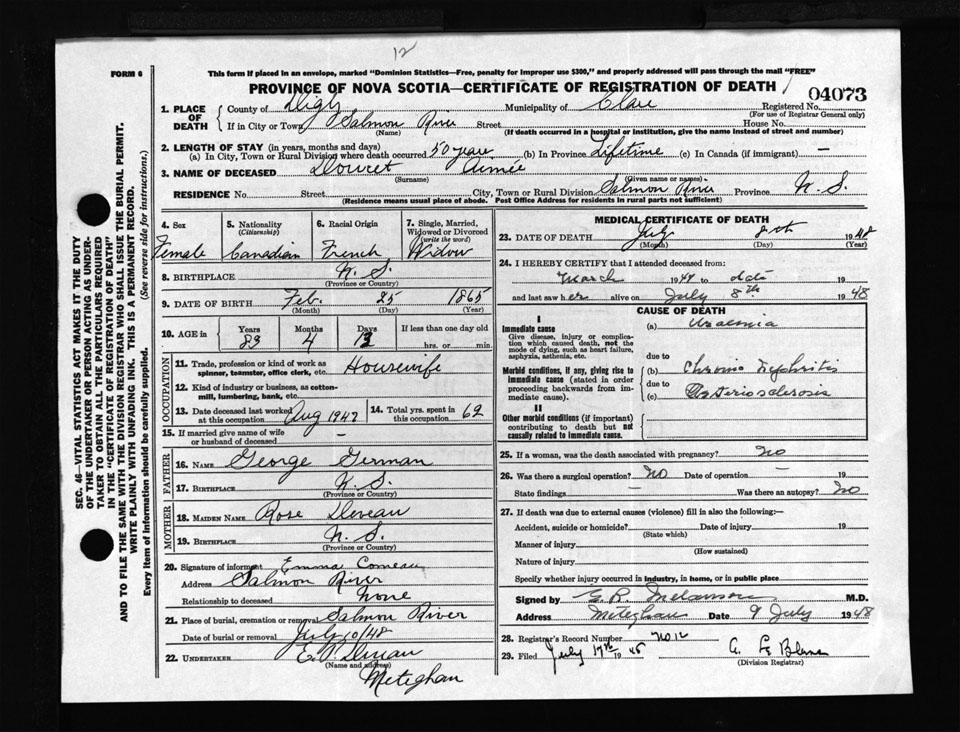 12
FORM 6
This form if placed in an envelope, marked "Dominion Statistics—Free, penalty for improper use $300," and properly addressed will pass through the mail "FREE"
PROVINCE OF NOVA SCOTIA—CERTIFICATE OF REGISTRATION OF DEATH
04073
1. PLACE OF DEATH { County of Digby Municipality of Clare Registered No.
(For use of Registrar General only)
If in City or Town Salmon River Street House No.
(Name) (If death occurred in a hospital or institution, give the name instead of street and number)
2. LENGTH OF STAY (in years, months and days)
(a) In City, Town or Rural Division where death occurred 50 years (b) In Province Lifetime (c) In Canada (if immigrant) —
3. NAME OF DECEASED Doucet Aimée
(Surname) (Given name or names)
RESIDENCE No. Street City, Town or Rural Division Salmon River Province N. S.
(Residence means usual place of abode. Post Office Address for residents in rural parts not sufficient)
4. Sex 5. Nationality (Citizenship) 6. Racial Origin 7. Single, Married, Widowed or Divorced (write the word)
Female Canadian French Widow
8. BIRTHPLACE N. S.
(Province or Country)
9. DATE OF BIRTH Feb. 25 1865
(Month) (Day) (Year)
10. AGE in Years Months Days If less than one day old
83 4 13 hrs. or min.
OCCUPATION
11. Trade, profession or kind of work as spinner, teamster, office clerk, etc. Housewife
12. Kind of industry or business, as cotton-mill, lumbering, bank, etc.
13. Date deceased last worked at this occupation Aug 1947 14. Total yrs. spent in this occupation 62
15. If married give name of wife or husband of deceased —
FATHER
16. NAME George German
17. BIRTHPLACE N. S.
(Province or Country)
MOTHER
18. MAIDEN NAME Rose Deveau
19. BIRTHPLACE N. S.
(Province or Country)
20. Signature of informant Emma Comeau
Address Salmon River
Relationship to deceased None
21. Place of burial, cremation or removal Salmon River
Date of burial or removal July 10/48
22. UNDERTAKER E. P. Deveau
(Name and address)
Meteghan
MEDICAL CERTIFICATE OF DEATH
23. DATE OF DEATH July 8th 1948
(Month) (Day) (Year)
24. I HEREBY CERTIFY that I attended deceased from:
March 1947 to date 19
and last saw her alive on July 8th 1948
CAUSE OF DEATH
I
Immediate cause (a) Uraemia
Give disease, injury or complication which caused death, not the mode of dying, such as heart failure, asphyxia, asthenia, etc.
due to
Morbid conditions, if any, giving rise to immediate cause (stated in order proceeding backwards from immediate cause).
(b) Chronic Nephritis
due to
(c) Arteriosclerosis
II
Other morbid conditions (if important) contributing to death but not causally related to immediate cause.
25. If a woman, was the death associated with pregnancy? No
26. Was there a surgical operation? No Date of operation — 19
State findings — Was there an autopsy? No
27. If death was due to external causes (violence) fill in also the following:—
Accident, suicide or homicide? Date of injury 19
(State which)
Manner of injury
(How sustained)
Nature of injury
Specify whether injury occurred in industry, in home, or in public place
Signed by E. R. Melanson M.D.
Address Meteghan Date 9 July 1948
28. Registrar's Record Number No 12
29. Filed July 17th 1948
(Division Registrar)
SEC. 46—VITAL STATISTICS ACT MAKES IT THE DUTY
OF THE UNDERTAKER OR PERSON ACTING AS UNDER-
TAKER TO OBTAIN ALL THE PARTICULARS REQUIRED
IN THE "CERTIFICATE OF REGISTRATION OF DEATH"
AND TO FILE THE SAME WITH THE DIVISION REGISTRAR WHO SHALL ISSUE THE BURIAL PERMIT.
WRITE PLAINLY WITH UNFADING INK. THIS IS A PERMANENT RECORD.
Every item of information should be carefully supplied. (See reverse side for instructions.)